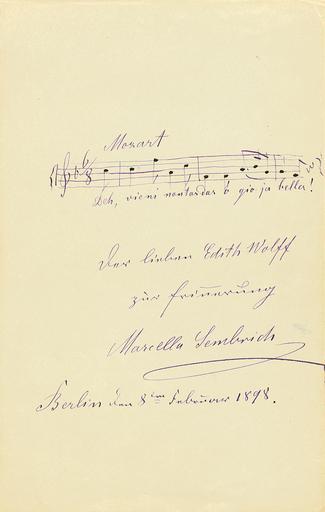 Mozart
6/8
Deh, vieni non tardar o gio ja bella!
Der lieben Edith Wolff
zur Erinnerung
Marcella Sembrich
Berlin den 8ten Februar 1898.